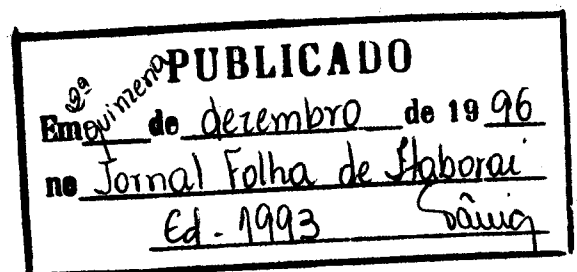 PUBLICADO
Em 2ª quinzena de dezembro de 1996
no Jornal Folha de Itaboraí
Ed - 1993 Sânia